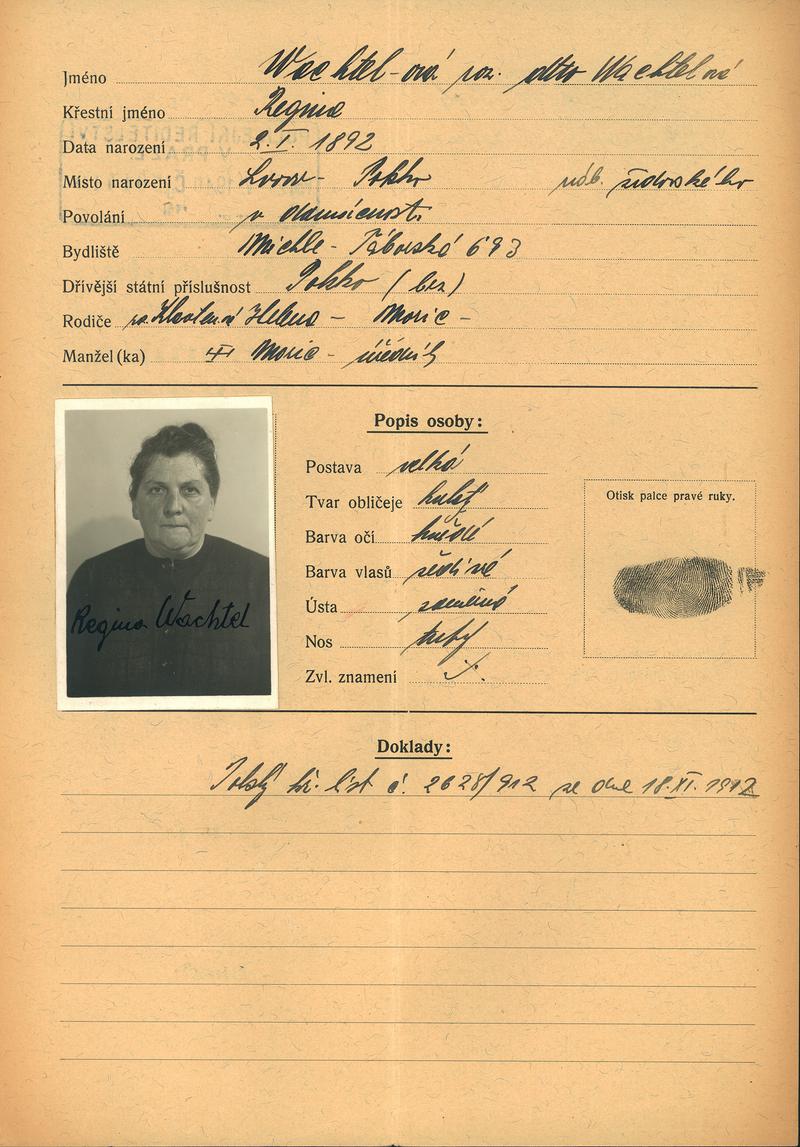 Jméno Wachtel-ová roz. dtto Wachtelová
Křestní jméno Regina
Data narození 2.I. 1892
Místo narození Lvov - Polsko náb. židovského
Povolání v domácnosti
Bydliště Michle - Táborská 693
Dřívější státní příslušnost Polsko (bez)
Rodiče Helena - Moric -
Manžel(ka) Moric - úředník
Popis osoby:
Postava velká
Tvar obličeje kulatý
Barva očí hnědé
Barva vlasů šedivé
Ústa souměrná
Nos tupý
Zvl. znamení
Otisk palce pravé ruky.
Regina Wachtel
Doklady:
Polský kř. list č. 2628/912 ze dne 18.XI. 1912